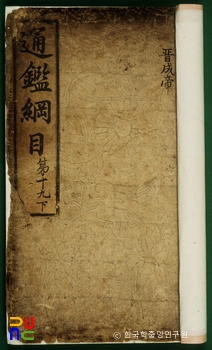 晉成帝
通鑑綱目
第十九下
PUUC
ⓒ한국학중앙연구원